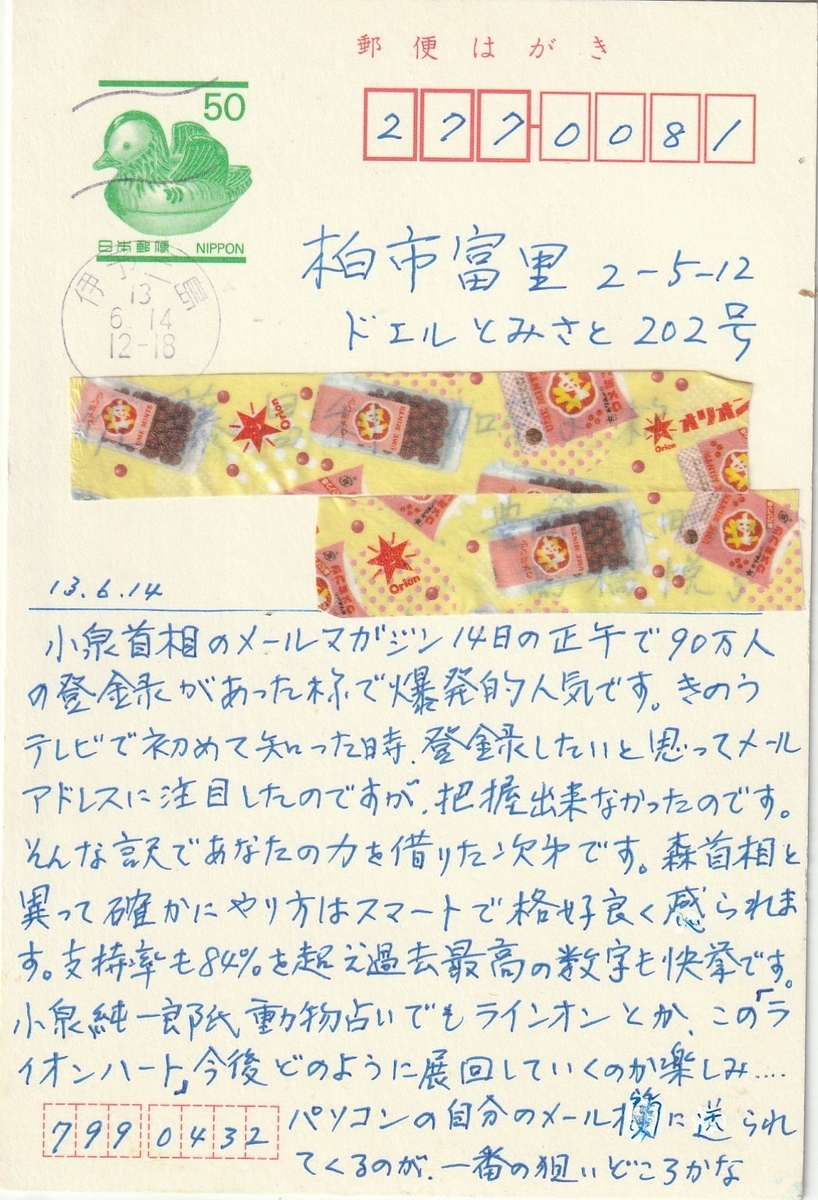 郵便はがき
50
日本郵便 NIPPON
277-0081
伊予三島
13
6.14
12-18
柏市富里 2-5-12
ドエルとみさと 202号
Orion
UME MINTS
オリオン
Orion
Orion
UME MINTS
13.6.14
小泉首相のメールマガジン14日の正午で90万人
の登録があった様で爆発的人気です。きのう
テレビで初めて知った時、登録したいと思ってメール
アドレスに注目したのですが、把握出来なかったのです。
そんな訳であなたの力を借りた次第です。森首相と
異って確かにやり方はスマートで格好良く感られま
す。支持率も84%を超え過去最高の数字も快挙です。
小泉純一郎氏動物占いでもラインオンとか、この「ラ
イオンハート」今後どのように展回していくのか楽しみ....
パソコンの自分のメール欄に送られ
てくるのが、一番の狙いどころかな
799 0432